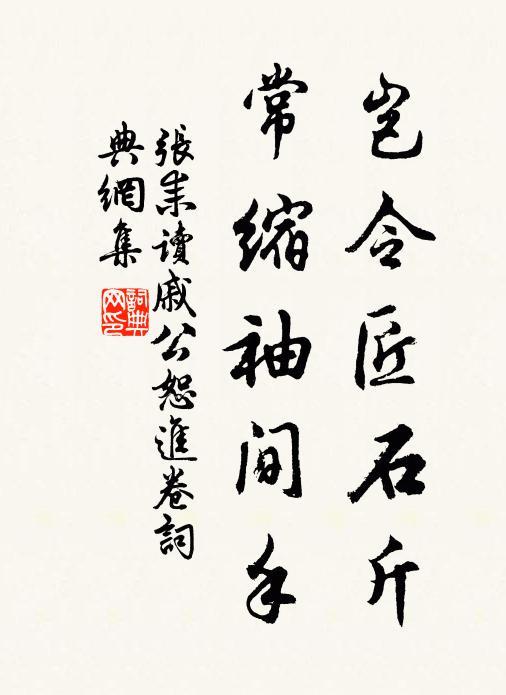 豈令匠石斤
常縮袖間手
張耒讀戚公恕進卷詞
典網集
詞典網印